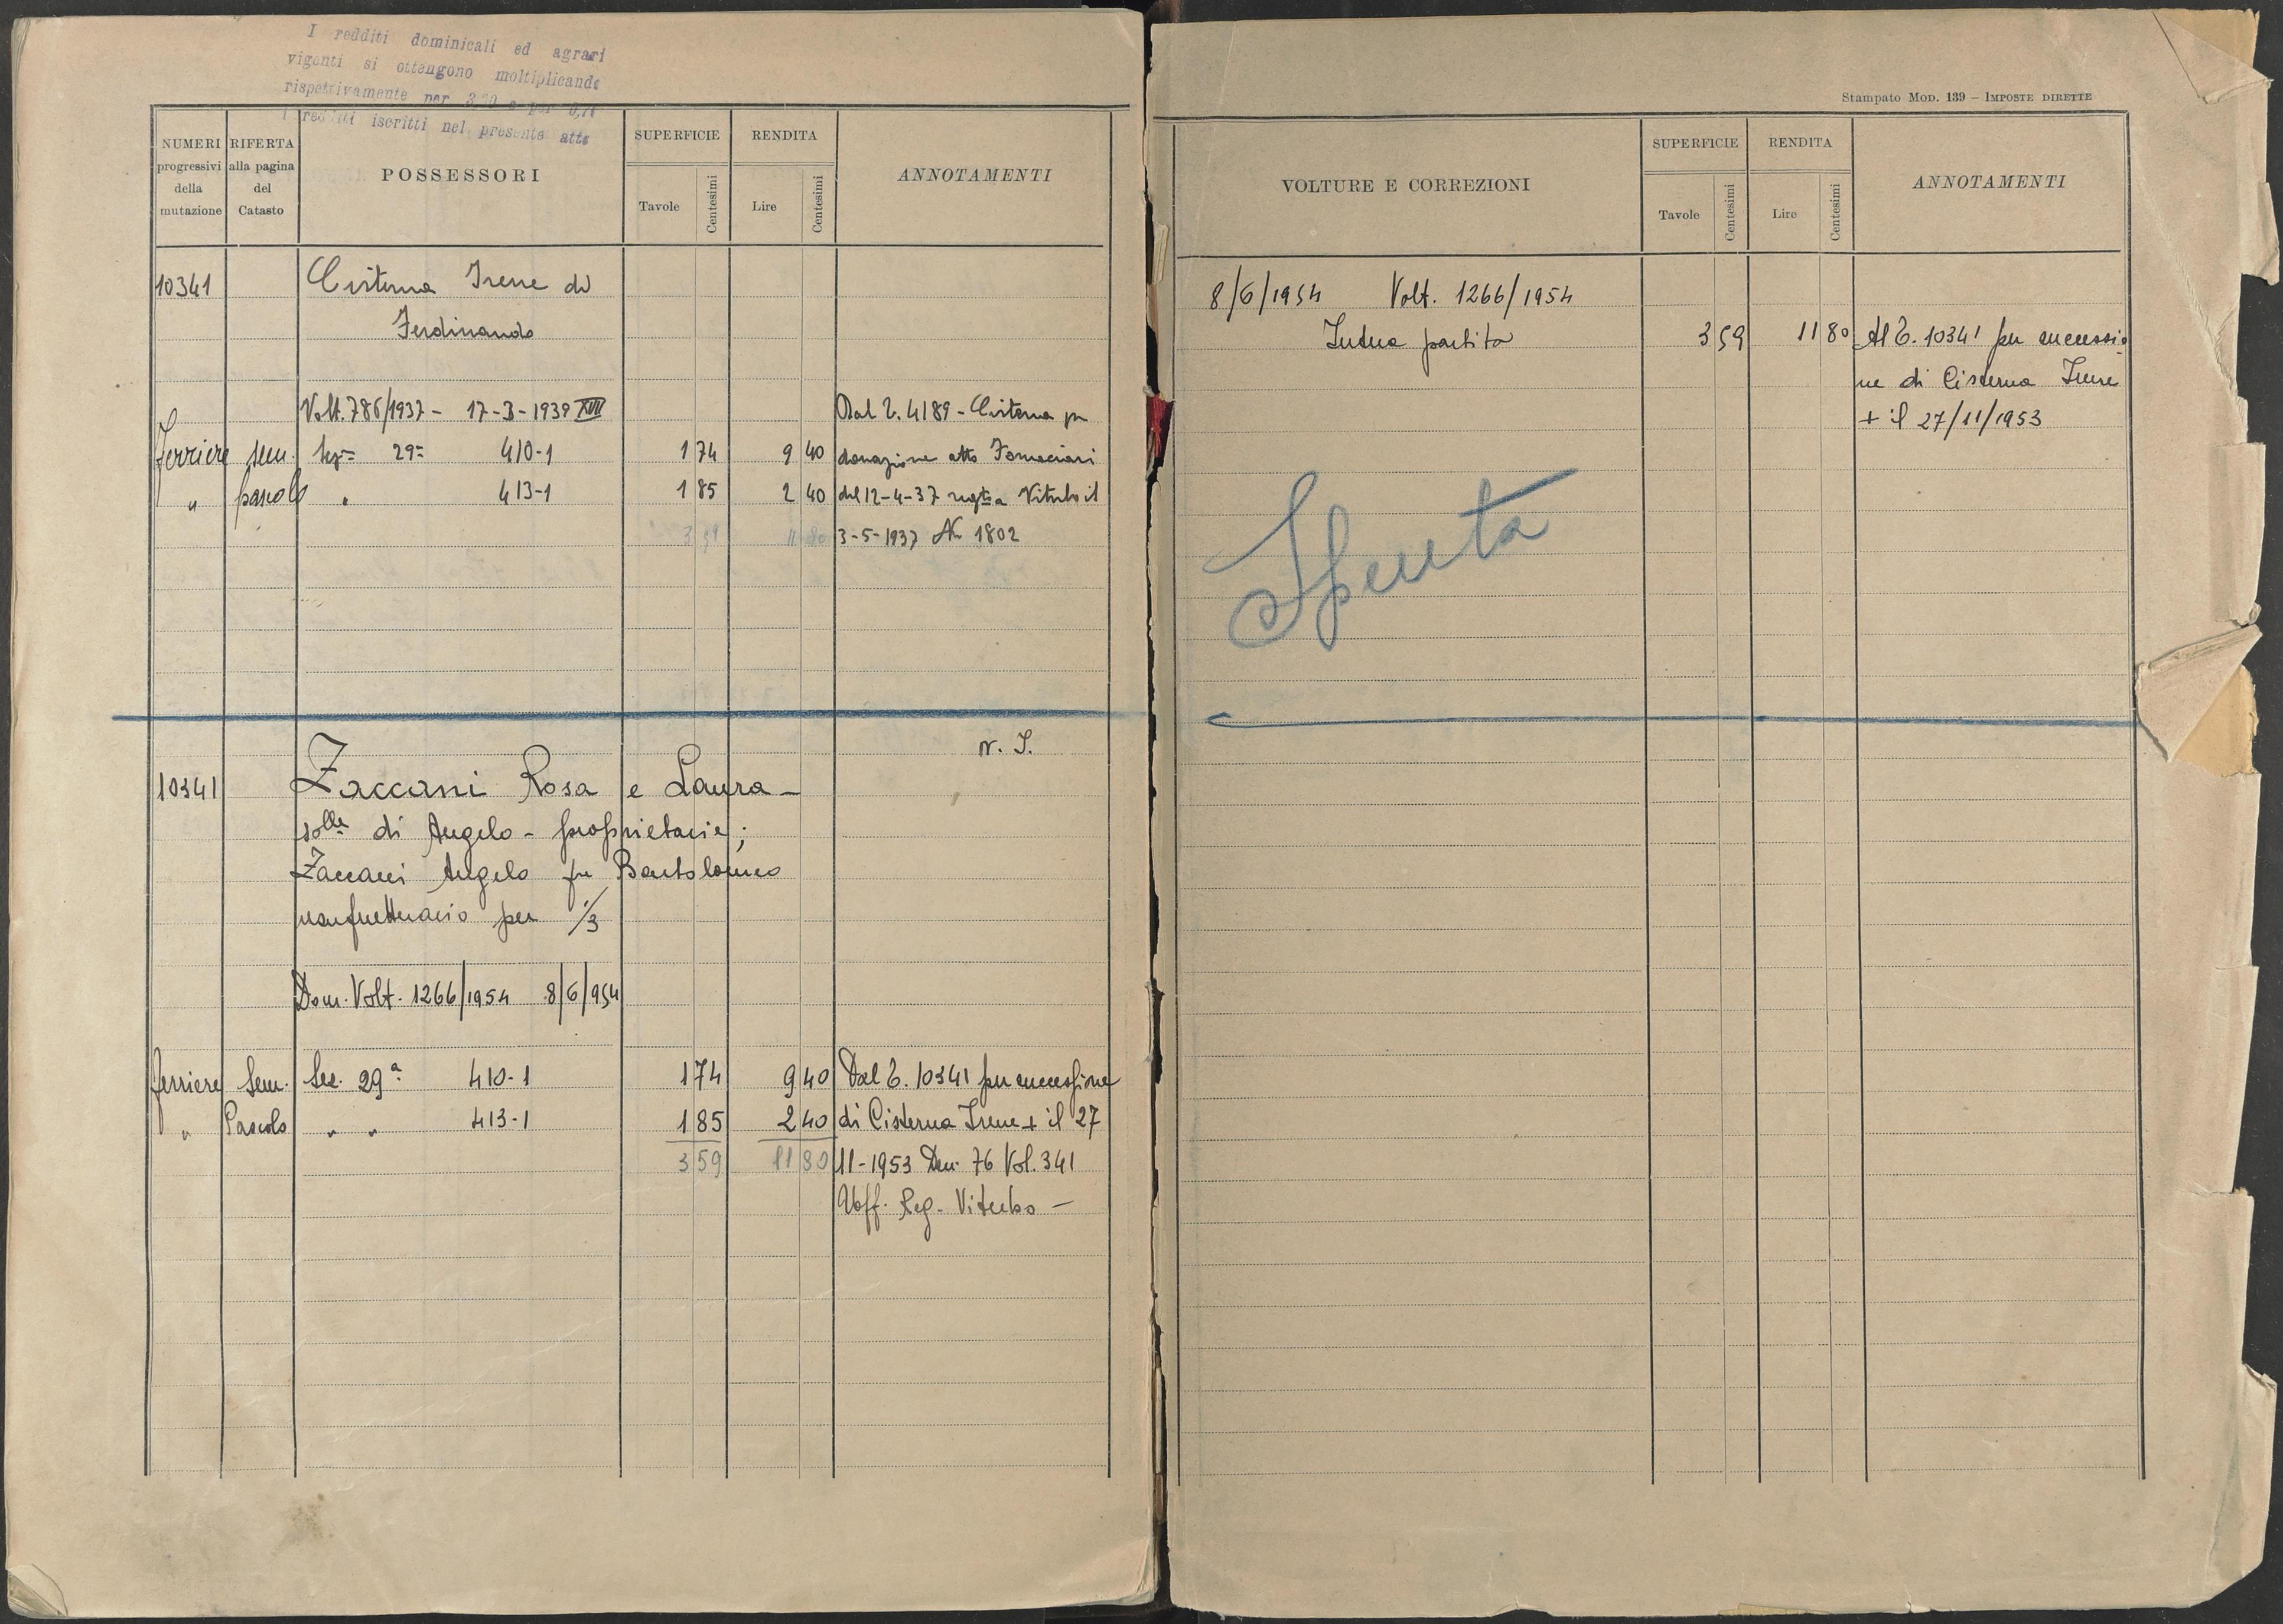 I redditi dominicali ed agrari
vigenti si ottengono moltiplicando
rispettivamente per
I redditi iscritti nel presente atto
NUMERI progressivi della mutazione
RIFERTA alla pagina del Catasto
POSSESSORI
SUPERFICIE
Tavole
Centesimi
RENDITA
Lire
Centesimi
ANNOTAMENTI
10341 Cisterna Irene di
Ferdinando
Volt. 786/1937 - 17-3-1939 XVII Dal T. 4189 - Cisterna per
Ferriere sem. Sez= 29= 410-1 1 74 9 40 donazione atto Fornaciari
" pascolo " 413-1 1 85 2 40 del 12-4-37 regta Viterbo il
3 59 11 80 3-5-1937 N 1802
N. I.
10341 Zaccani Rosa e Laura -
solle di Angelo - proprietarie;
Zaccani Angelo fu Bartolomeo
usufruttuario per 1/3
Dom. Volt. 1266/1954 8/6/954
ferriere Sem. Sez. 29a 410-1 1 74 9 40 Dal T. 10341 per successione
" Pascolo " " 413-1 1 85 2 40 di Cisterna Irene + il 27
3 59 11 80 11-1953 Den. 76 Vol. 341
Uff. Reg. Viterbo -
Stampato MOD. 139 - IMPOSTE DIRETTE
VOLTURE E CORREZIONI
SUPERFICIE
Tavole
Centesimi
RENDITA
Lire
Centesimi
ANNOTAMENTI
8/6/1954 Volt. 1266/1954
Intera partita 3 59 11 80 Al T. 10341 per successio
ne di Cisterna Irene
+ il 27/11/1953
Spenta